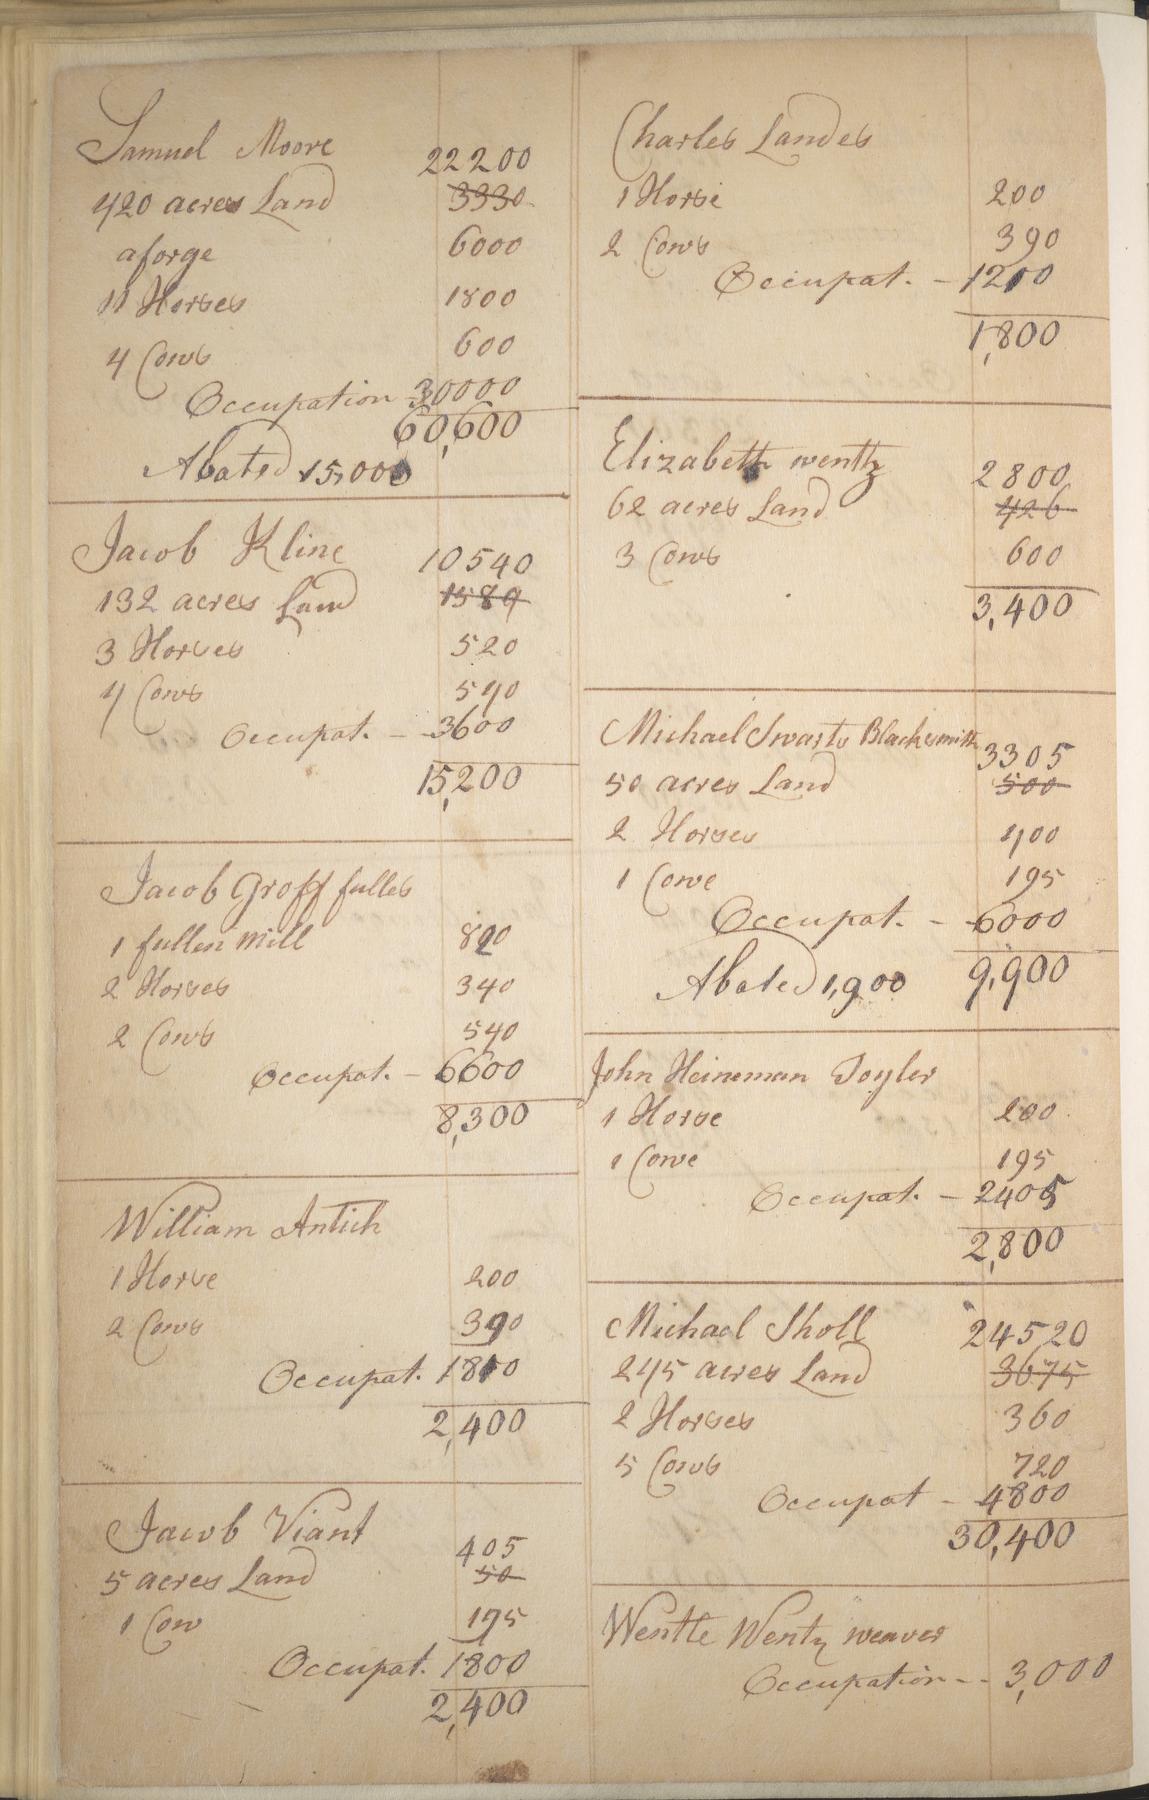 Samuel Moore 22200
420 acres Land 3330
a forge 6000
11 Horses 1800
4 Cows 600
Occupation 30000
60,600
Abated 15,000
Jacob Kline 10540
132 acres Land 1589
3 Horses 520
4 Cows 540
Occupat. - 3600
15,200
Jacob Groff fuller
1 fullen mill 820
2 Horses 340
2 Cows 540
Occupat. - 6600
8,300
William Antich
1 Horse 200
2 Cows 390
Occupat. 1810
2,400
Jacob Viant 405
5 acres Land 50
1 Cow 195
Occupat. 1800
2,400
Charles Landes
1 Horse 200
2 Cows 390
Occupat. - 1210
1,800
Elizabeth wentz 2800
62 acres Land 426
3 Cows 600
3,400
Michael Swarts Blacksmith 3305
50 acres Land 500
2 Horses 400
1 Cowe 195
Occupat. - 6000
Abated 1,900 9,900
John Heineman Toyler
1 Horse 200
1 Cowe 195
Occupat. - 2405
2,800
Michael Sholl 24520
245 acres Land 3675
2 Horses 360
5 Cows 720
Occupat - 4800
30,400
Wentle Wentz weaver
Occupation - - 3,000